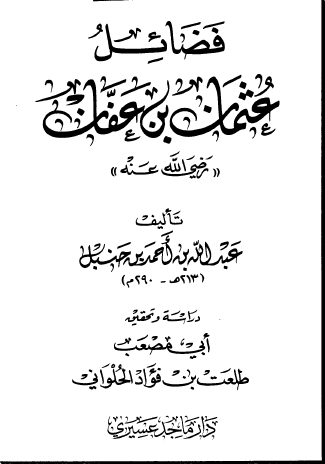 فَضَائِلُ
عُثْمَانَ بْنِ عَفَّانَ
«رَضِيَ اللَّهُ عَنْهُ»
تَأليف
عَبْدُ اللهِ بن أَحمَد بن حَنبَل
(٢١٣هـ - ٢٩٠م)
دراسة وتحقيق
أبي مصعب
طلعت بن فؤاد الحلواني
دار ماجد عسيري